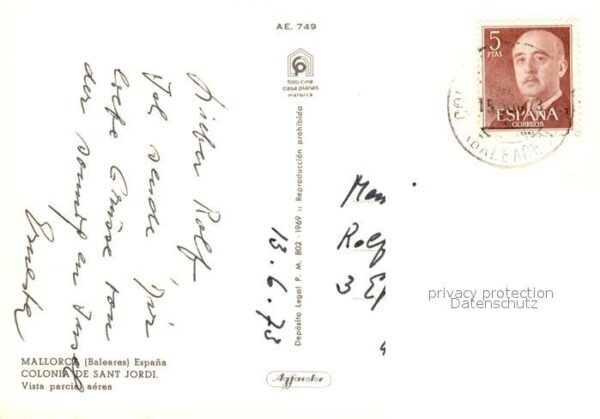 AE. 749
foto cine
casa planas
mallorca
5
PTAS
ESPAÑA
CORREOS
(BALEARE
Lieber Rolf
Ich sende Dir
liebe Grüsse von
der sonnigen Insel
13.6.73
Depósito Legal P. M. 802 - 1969 :: Reproducción prohibida
Rolf
3
privacy protection
Datenschutz
MALLORCA (Baleares) España
COLONIA DE SANT JORDI.
Vista parcial aérea
Agfacolor